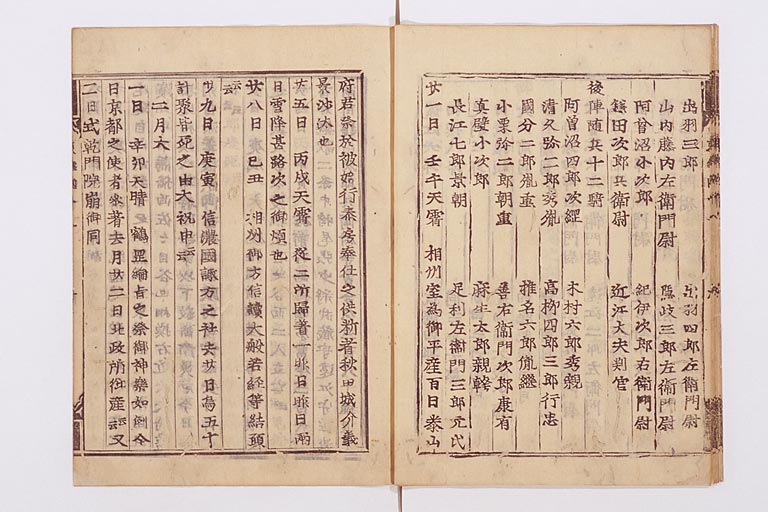 出羽三郎 出羽四郎左衛門尉
山内藤内左衛門尉 隠岐三郎左衛門尉
阿曽沼小次郎 紀伊次郎右衛門尉
鎌田次郎兵衛尉 近江大夫判官
後陣随兵十二騎
阿曽沼四郎次経 木村六郎秀親
清久弥二郎秀胤 高柳四郎三郎行忠
國分二郎胤重 椎名六郎胤継
小栗弥二郎朝重 善右衛門次郎康有
真壁小次郎 麻生太郎親幹
長江七郎景朝 足利左衛門三郎元氏
廿一日 壬午天霽 相州室為御平産百日泰山
府君祭於被始行泰房奉仕之供新者秋田城介義
景沙汰也
廿五日 丙戌天霽 従二所帰著一昨日昨日雨
日雪降甚路次之御煩也
廿八日己丑 相州御方信讀大般若経等結願
云云
廿九日 庚寅 信濃國諏方之社去廿日烏五十
計聚皆死之由大祝申云云
二月大
一日 辛卯天晴 鶴岳 之祭御神樂如例今
日京都之使者参著去月廿二日北政所御産云云又
二日式乾門院崩御同